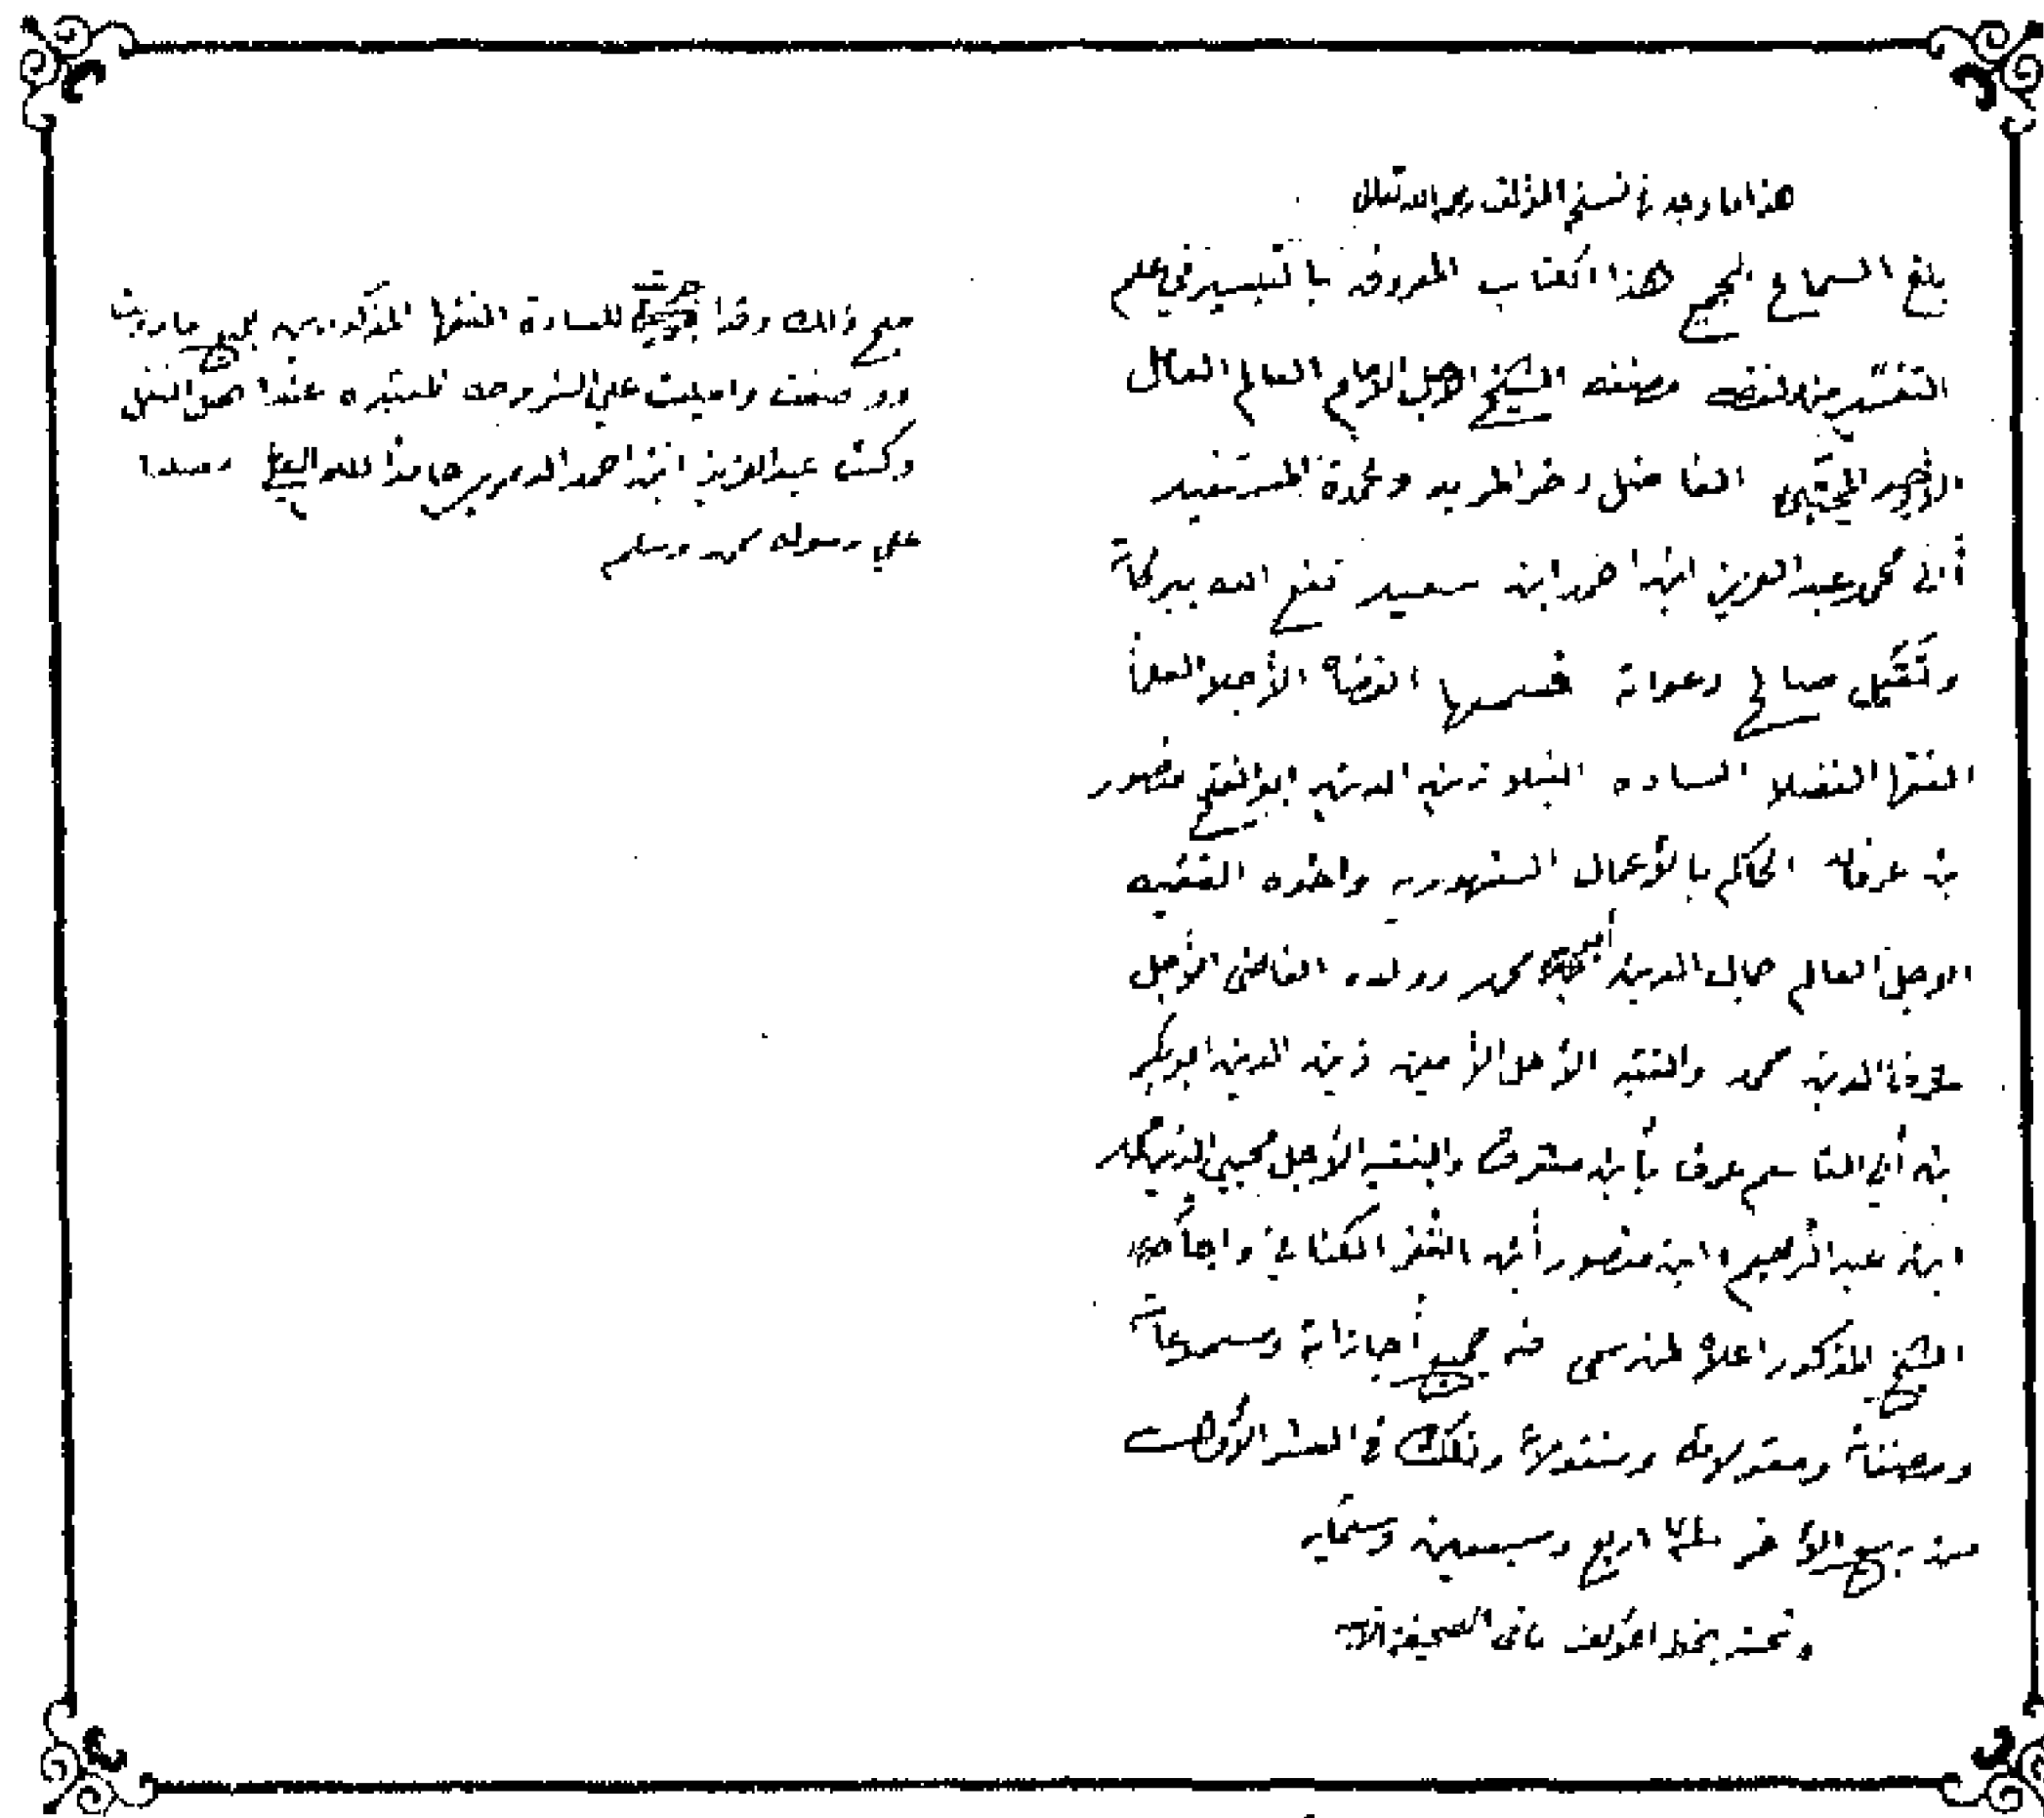 هذا ما وجد في نسخ المؤلف رحمه الله تعالى
بلغ السماع لجميع هذا الكتاب المعروف بالتيسير في علم
التفسير من لفظه مصنفه الشيخ الاجل الامام العالم العامل
الأوحد المجتبى الفاضل ذخر المريد وعمدة المستفيد
أبي محمد عبد العزيز ابن احمد ابن سعيد نفع الله ببركاته
وتقبل صالح دعواته فسمعها القضاة الأجلا العلما
الفقها الفضلا الساده النبلا زين الدين ابو الفتح منصور
بن عرفات الحاكم بالأعمال السنهوريه واخوه الفقيه
الاجل العالم جمال الدين محمد وولده القاضى الأجل
شرف الدين محمد والفقيه الأجل الأمين زين الدين ابو بكر
بن أبي القاسم عرف بأبن مشرف والفقيه الأجل محيي الدين محمد
ابن عبد الرحيم ابن منصور أبن الكناني واجاز
الشيخ المذكور اعلاه لمن سمى فيه جميع أجازاته ومسموعاته
ومصنفاته ومقولاته ومنقولاته وذلك في العشر الأول
من ربيع الأخر سنة اربع وسبعين وستمايه
وتحته بخط المؤلف ما في الصحيفة الاتيه
صح ذالك وقد اجزت للسادة الفقها المذكورين جميع ما رويت
وصنفت وامليت علي الشروط المعتبره عند اهل النقل
وكتب عبد العزيز ابن احمد الديريني حامدا لله العلي ومصليا
علي رسوله محمد ومسلم